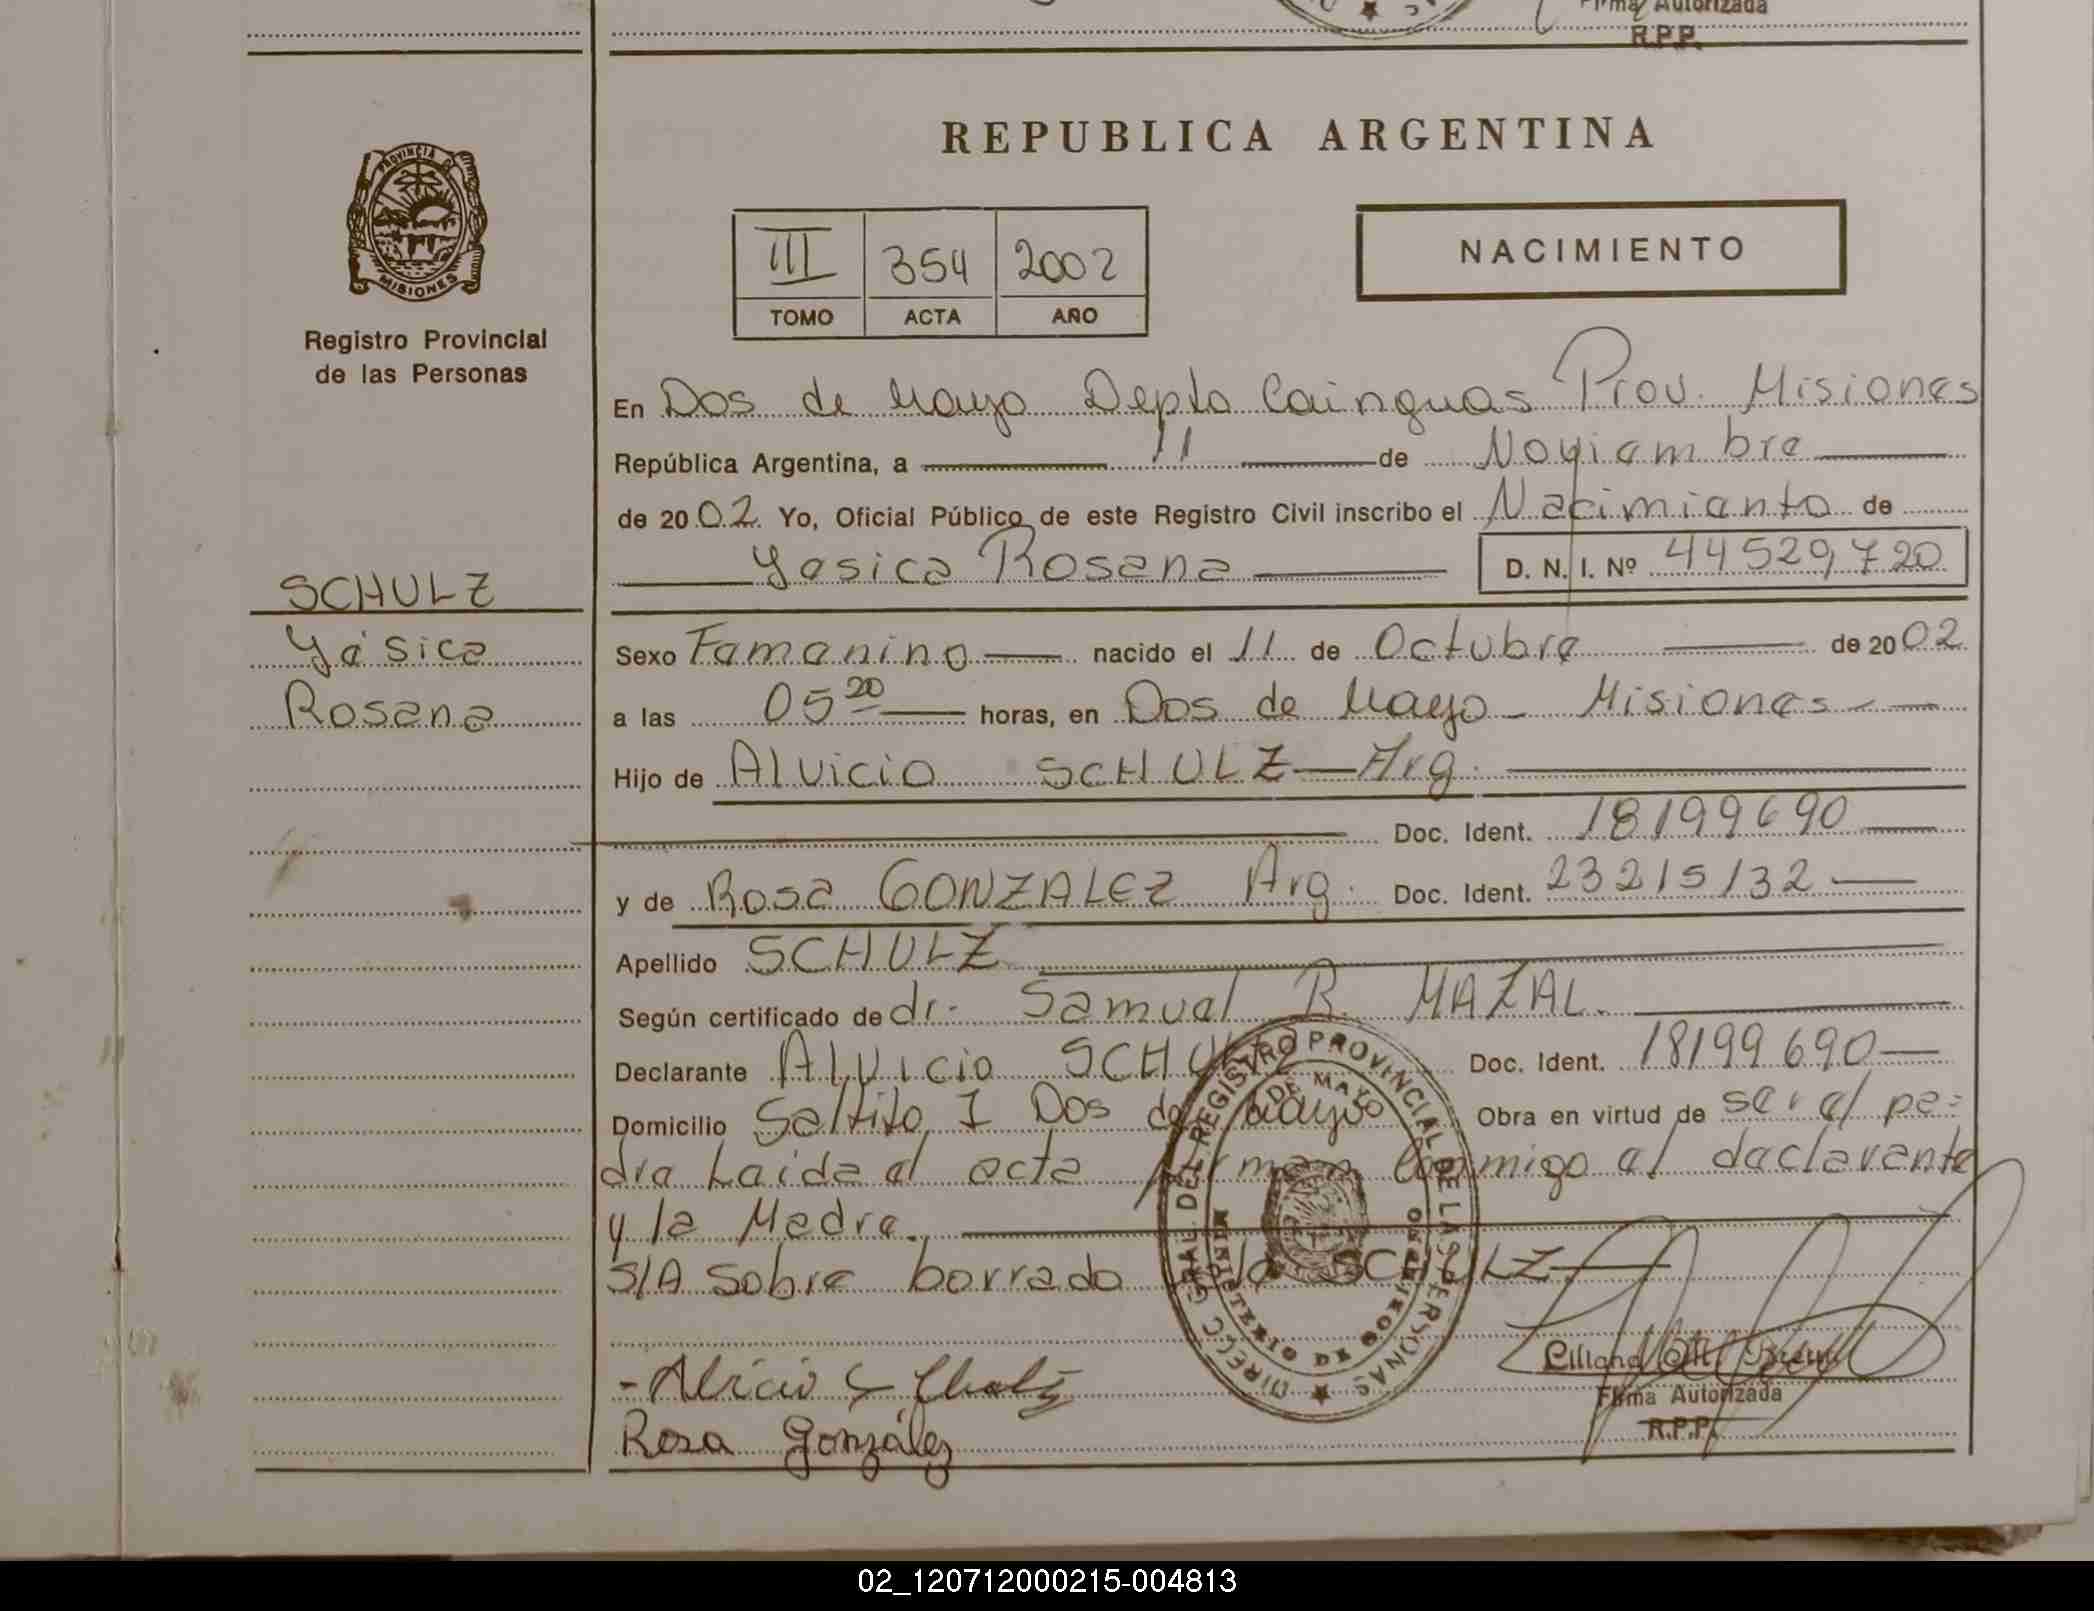 Firma Autorizada
R.P.P.
PROVINCIA DE
MISIONES
Registro Provincial
de las Personas
SCHULZ
Yésica
Rosana
REPUBLICA ARGENTINA
III 354 2002
TOMO ACTA AÑO
NACIMIENTO
En Dos de Mayo Depto Cainguas Prov. Misiones
República Argentina, a 11 de Noviembre
de 2002. Yo, Oficial Público de este Registro Civil inscribo el Nacimiento de
Yesica Rosana D. N. I. Nº 44529720
Sexo Femenino nacido el 11 de Octubre de 2002
a las 05 20 horas, en Dos de Mayo - Misiones
Hijo de Alvicio SCHULZ - Arg.
Doc. Ident. 18199690
y de Rosa GONZALEZ Arg. Doc. Ident. 23215132
Apellido SCHULZ
Según certificado de dr. Samuel R. MAZAL.
Declarante Alvicio SCHULZ Doc. Ident. 18199690
Domicilio Saltito I Dos de Mayo Obra en virtud de ser el pa-
dre Leida el acta firman conmigo el declarante
y la Madre.
S/A sobre borrado SCHULZ
DIRECC. GRAL. DEL REGISTRO PROVINCIAL DE LAS PERSONAS
DE MAYO
MINISTERIO DE GOBIERNO
- Alvicio Schulz
Rosa González
Liliana
Firma Autorizada
R.P.P.
02_120712000215-004813